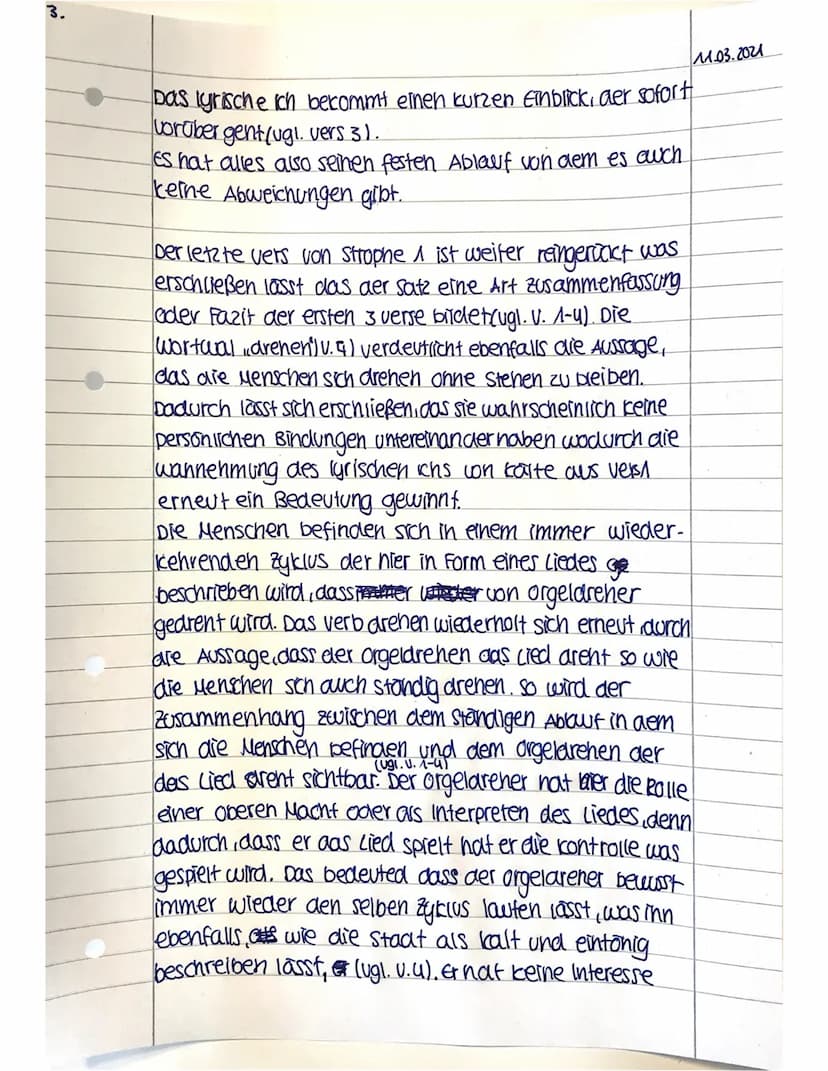 3.
11.03.2021
Das lyrische Ich bekommt einen kurzen Einblick, der sofort
vorüber geht (vgl. Vers 3).
Es hat alles also seinen festen Ablauf von dem es auch
keine Abweichungen gibt.
Der letzte Vers von Strophe 1 ist weiter reingerückt was
erschließen lässt das der Satz eine Art Zusammenfassung
oder Fazit der ersten 3 Verse bildet (vgl. V. 1-4). Die
Wortwahl „drehen“ (V. 4) verdeutlicht ebenfalls die Aussage,
das die Menschen sich drehen ohne stehen zu bleiben.
Dadurch lässt sich erschließen, das sie wahrscheinlich keine
persönlichen Bindungen untereinander haben wodurch die
Wahnehmung des lyrischen Ichs von Kälte aus Vers 1
erneut ein Bedeutung gewinnt.
Die Menschen befinden sich in einem immer wieder-
kehrenden Zyklus der hier in Form eines Liedes
beschrieben wird, dass von Orgeldreher
gedreht wird. Das Verb drehen wiederholt sich erneut durch
die Aussage, dass der Orgeldrehen das Lied dreht so wie
die Menschen sich auch ständig drehen. So wird der
Zusammenhang zwischen dem ständigen Ablauf in dem
sich die Menschen befinden und dem Orgeldrehen der
(vgl. V. 1-4)
das Lied dreht sichtbar. Der Orgeldreher hat hier die Rolle
einer oberen Macht oder als Interpreten des Liedes, denn
dadurch, dass er das Lied spielt hat er die Kontrolle was
gespielt wird. Das bedeuted dass der Orgeldreher bewusst
immer wieder den selben Zyklus laufen lässt, was ihn
ebenfalls, wie die Stadt als kalt und eintönig
beschreiben lässt, (vgl. V. 4). Er hat keine Interesse